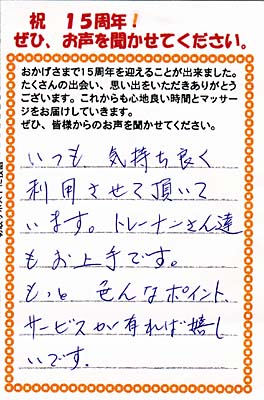 祝 15周年！
ぜひ、お声を聞かせてください。
おかげさまで15周年を迎えることが出来ました。
たくさんの出会い、思い出をいただきありがとう
ございます。これからも心地良い時間とマッサー
ジをお届けしていきます。
ぜひ、皆様からのお声を聞かせてください。
いつも 気持ち良く
利用させて頂いて
います。トレーナーさん達
もお上手です。
もっと 色んなポイント、
サービスが有れば嬉し
いです。